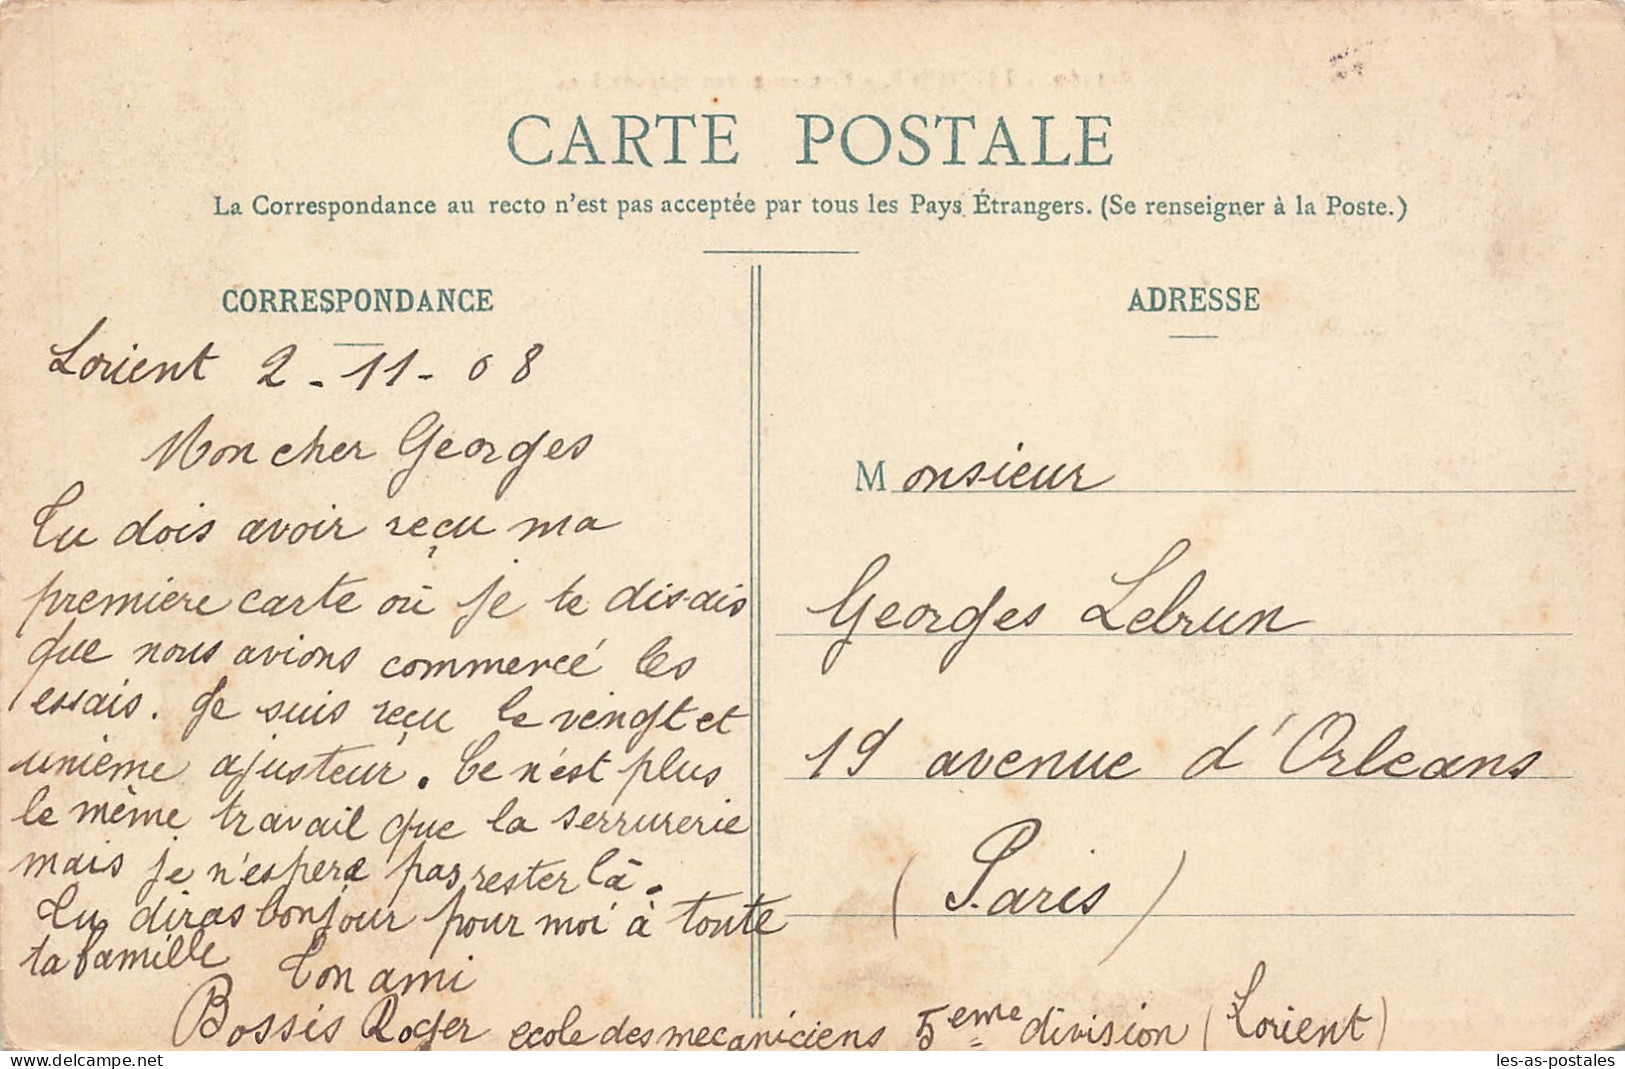 CARTE POSTALE
La Correspondance au recto n'est pas acceptée par tous les Pays Étrangers. (Se renseigner à la Poste.)
CORRESPONDANCE
Lorient 2-11-08
Mon cher Georges
Tu dois avoir reçu ma
première carte où je te disais
que nous avions commencé les
essais. Je suis reçu le vingt et
unième ajusteur. Ce n'est plus
le même travail que la serrurerie
mais je n'espere pas rester là.
Tu diras bonjour pour moi à toute
ta famille Ton ami
Bossis Roger ecole des mecaniciens 5eme division (Lorient)
ADRESSE
Monsieur
Georges Lebrun
19 avenue d'Orleans
(Paris)
les-as-postales
delcampe.net